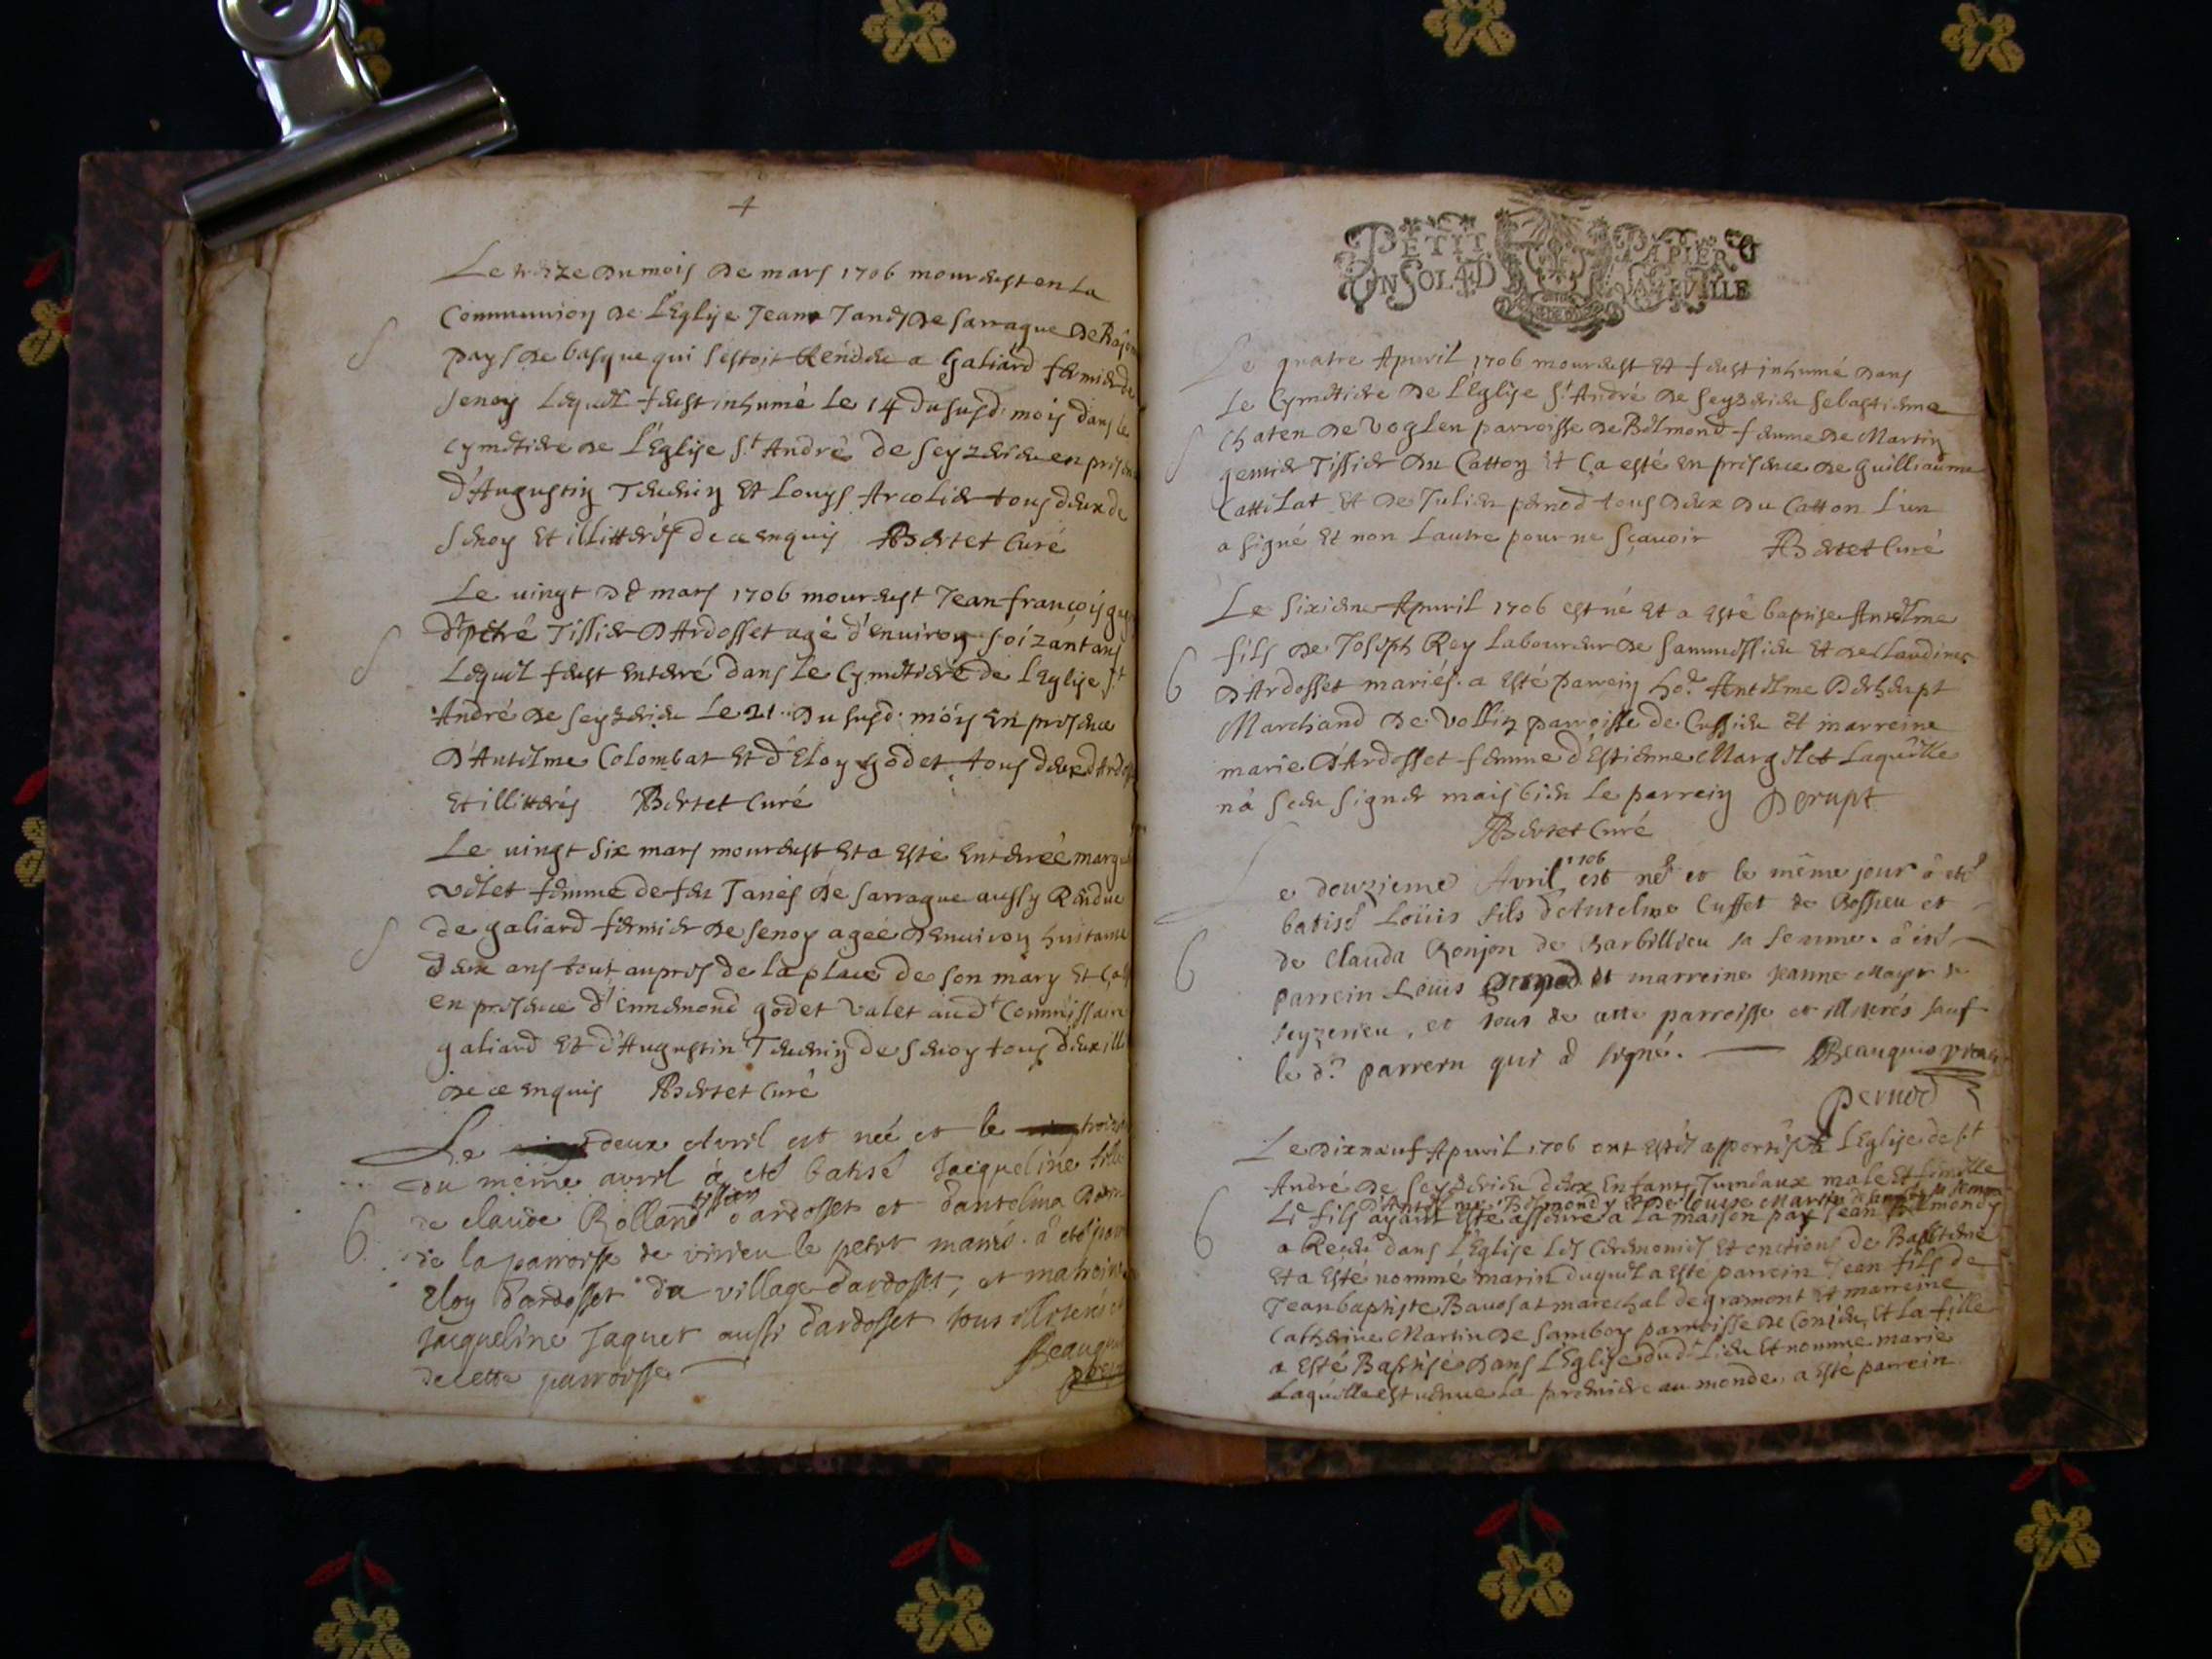 4
Le treze du mois de mars 1706 mourust en la
Communion de l'Eglise Jean de Sarrague de
pays de basque qui s'estoit Rendeu a Galiard fermier de
Senoy Lequel feust inhumé Le 14 du susd. mois dans le
cymetiere de l'Eglise St André de Seyzerieu en presence
d'Augustin et Louys Arcolier tous deux de
Senoy et illitterés de ce enquis Bertet Curé
Le uingt de mars 1706 mourust Jean françois
Tissier D'Ardosset agé d'enuiron soizant ans
Lequel feust enterré dans Le Cymetiere de l'Eglise St
André de Seyzerieu Le 21 du susd. mois en presence
D'Antelme Colombat et d'Eloy godet tous deux
et illitterés Bertet Curé
Le uingt six mars mourust et a esté enterreé
volet femme de feu de Sarrague aussy Rendue
de galiard fermier de Senoy ageé d'enuiron huitante
deux ans tout aupres de la place de son mary et
en presence d'Ennemond godet Valet aud.t Commissaire
galiard et d'Augustin de Senoy tous deux
de ce enquis Bertet Curé
Le deux Avril est neé et le
du meme avril à eté batisé Jacqueline fille
de claude Rolland tissier d'ardosset et d'antelma
de la parroisse de virieu le petit mariés. à eté
Eloy dardosset du village dardosset, et
Jacqueline Jaquet aussi dardosset tous
de cette parroisse
PETIT PAPIER
UN SOL 4 D LA FEUILLE
Le quatre Apuril 1706 mourust et feust inhumé dans
Le Cymetiere de l'Eglise St André de Seyzerieu Sebastienne
Chaten de Voglen parroisse de Belmond femme de Martin
Tissier du Catton et ça esté en presence de Guilliaume
Cattilat et de Julien pernod tous deux du Catton L'un
a signé et non Lautre pour ne sçauoir Bertet Curé
Le Sixiene Apuril 1706 est né et a esté baptise Antelme
fils de Joseph Rey Laboureur de et de Claudine
D'Ardosset mariés. a esté parrein Antelme
Marchand de Vollin parroisse de Cussieu et marreine
marie D'Ardosset femme d'Estienne Laquelle
n'a sceu signer mais bien Le parrein Derupt
Bertet Curé
Le douzieme Avril 1706 est né et le même jour à eté
batisé Loüis fils d'Antelme Cuffet de et
de Clauda Ronjon de Barbillieu sa femme. à eté
parrein Loüis pernod et marreine Jeanne Mayer de
Seyzerieu, et tous de cette parroisse et illiterés sauf
le d.t parrein qui à signé. Beauquis
Pernod
Le Dixneuf Apuril 1706 ont estés apportés a L'Eglise de St
André de Seyzerieu deux Enfants Jumeaux male et femelle
D'Antelme Belmondy et de Louise Martin sa femme
Le fils ayant esté assuré a La maison par Jean Belmondy
a Receu dans L'Eglise Les Ceremonies et onctions de Bapteme
et a esté nommé marin duquel a esté parrein Jean fils de
Jean baptiste Bauosat marechal de gramont et marreine
Catherine Martin de Samboy parroisse de Conzieu, et La fille
a esté Baptisé dans L'Eglise dud.t Lieu et nommé marie
Laquelle est uenue La premiere au monde, a esté parrein